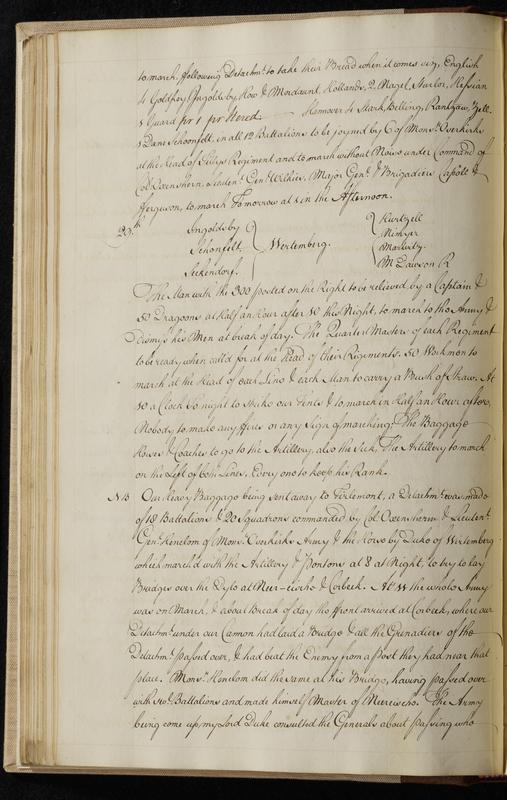 to march, following Detachmt. to take their Bread when it comes up, English
4 Godfrey, Ingoldsby, How & Mordaunt, Hollands, 2. Nagel, Hessian
1 Guard pr 1 pr Hannover 4 Stark, Belling, Rantzaw,
1 Dane Schonfelt, in all 12 Battalions to be joyned by 6 of Monsr. Overkirks
at the Head of Regiment and to march without Noise under Command of
Col: Oxenstern, Leutent. Genl. Wilkies, Major Genl. & Brigadiers &
Ferguson, to march Tomorrow at 1 in the Afternoon.
29th. Ingoldsby
Schonfelt.
Seckendorf.
Wertemberg.
Kurtzell
McLawson R
The Man with the 300 posted on the Right to be relieved by a Captain &
50 Dragoons at half an Hour after 10 this Night, to march to the Army &
Dismiss his Men at break of day. The Quarter Masters of each Regiment
to be ready when call'd for at the Head of their Regiments. 50 Workmen to
march at the Head of each Line & each Man to carry a Bush of Straw. At
10 a Clock to night to strike our Tents & to march in half an Hour after,
Nobody to make any Fires or any Sign of marching. The Baggage
Horses & Coaches to go to the Artillery, also the Sick, The Artillery to march
on the Left of both Lines. Every one to keep his Rank.
NB Our heavy Baggage being sent away to Tirlemont, a Detachmt. was made
of 18 Battalions & 20 Squadrons commanded by Col: Oxenshern & Lieutent.
Genl. Henelom of Monsr. Overkirks Army & the Horse by Duke of Wertemberg
which march'd with the Artillery & Pontons at 8 at Night, to try to lay
Bridges over the Dyle at Neer-eische & Corbeek. At 11 the whole Army
was on March, & about Break of day the front arrived at Corbeek, where our
Detachmt. under our Cannon had laid a Bridge & all the Grenadiers of the
Detachmt. passed over, & had beat the Enemy from a Post they had near that
place. Monsr. Henelom did the same at his Bridge, having passed over
with sevl. Battalions and made himself Master of The Army
being come up, my Lord Duke consulted the Generals about passing who